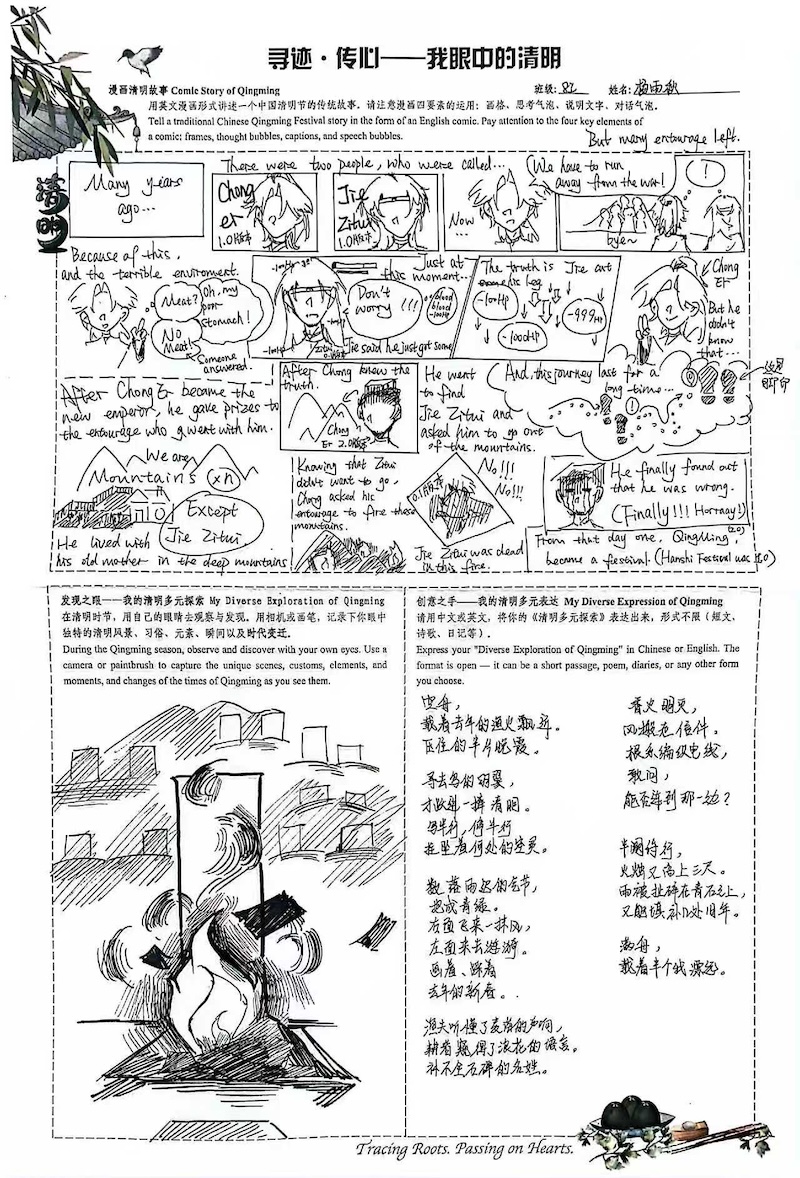 寻迹·传心——我眼中的清明
漫画清明故事 Comic Story of Qingming
班级: 姓名: 杨雨秋
用英文漫画形式讲述一个中国清明节的传统故事。请注意漫画四要素的运用：画格、思考气泡、说明文字、对话气泡。
Tell a traditional Chinese Qingming Festival story in the form of an English comic. Pay attention to the four key elements of
a comic: frames, thought bubbles, captions, and speech bubbles.
清明
Many years
ago...
There were two people, who were called...
Chong
er
1.0版本
Jie
Zitui
1.0版本
Now
...
We have to run
away from the war!
But many entourage left.
!
bye~
Because of this,
and the terrible enviroment.
Meat?
No
Meat!
Oh, my
poor
stomach!
Someone
answered.
Just at
this moment...
-100HP
Don't
worry !!!
blood
blood
-100HP
Jie said he just got some
The truth is Jie cut
his leg
-100HP
-100HP
-999HP
Chong
Er
But he
didn't
know
that...
After Chong Er became the
new emperor, he gave prizes to
the entourage who went with him.
After Chong knew the
truth.
Chong
Er 2.0版本
He went
to find
Jie Zitui and
asked him to go out
of the mountains.
And this journey last for a
long time...
!
脚印
We are
Mountains
×n
Except
Jie Zitui
He lived with
his old mother in the deep mountains
Knowing that Zitui
didn't want to go,
Chong asked his
entourage to fire these
mountains.
0.1版本
No!!!
No!!!
Jie Zitui was dead
in this fire.
He finally found out
that he was wrong.
(Finally!!! Horraay!)
From that day one, QingMing
(2.0)
became a festival. (Hanshi Festival was 1.0)
发现之眼——我的清明多元探索 My Diverse Exploration of Qingming
在清明时节，用自己的眼睛去观察与发现。用相机或画笔，记录下你眼中
独特的清明风景、习俗、元素、瞬间以及时代变迁。
During the Qingming season, observe and discover with your own eyes. Use a
camera or paintbrush to capture the unique scenes, customs, elements, and
moments, and changes of the times of Qingming as you see them.
创意之手——我的清明多元表达 My Diverse Expression of Qingming
请用中文或英文，将你的《清明多元探索》表达出来，形式不限（短文、
诗歌、日记等）.
Express your "Diverse Exploration of Qingming" in Chinese or English. The
format is open — it can be a short passage, poem, diaries, or any other form
you choose.
空舟，
载着去年的渔火飘远。
压住的半片晚霞。
寻去鸟的羽翼，
才做到一捧清明。
每半行，停半行
数落雨迟的季节，
右面飞来一抹风，
左面来去游游。
画着、踩着
去年的新香。
渔夫听懂了麦浪的声响，
耕者窥得了浪花的
补不全石碑的名姓。
香火明灭，
风搬危信件。
根系编织电线，
敢问，
能否译到那一边？
半阑侍行，
火烟又高上三尺。
雨被扯碎在青石上，
又能填补几处旧年。
满舟，
载着半个钱漂远。
Tracing Roots. Passing on Hearts.